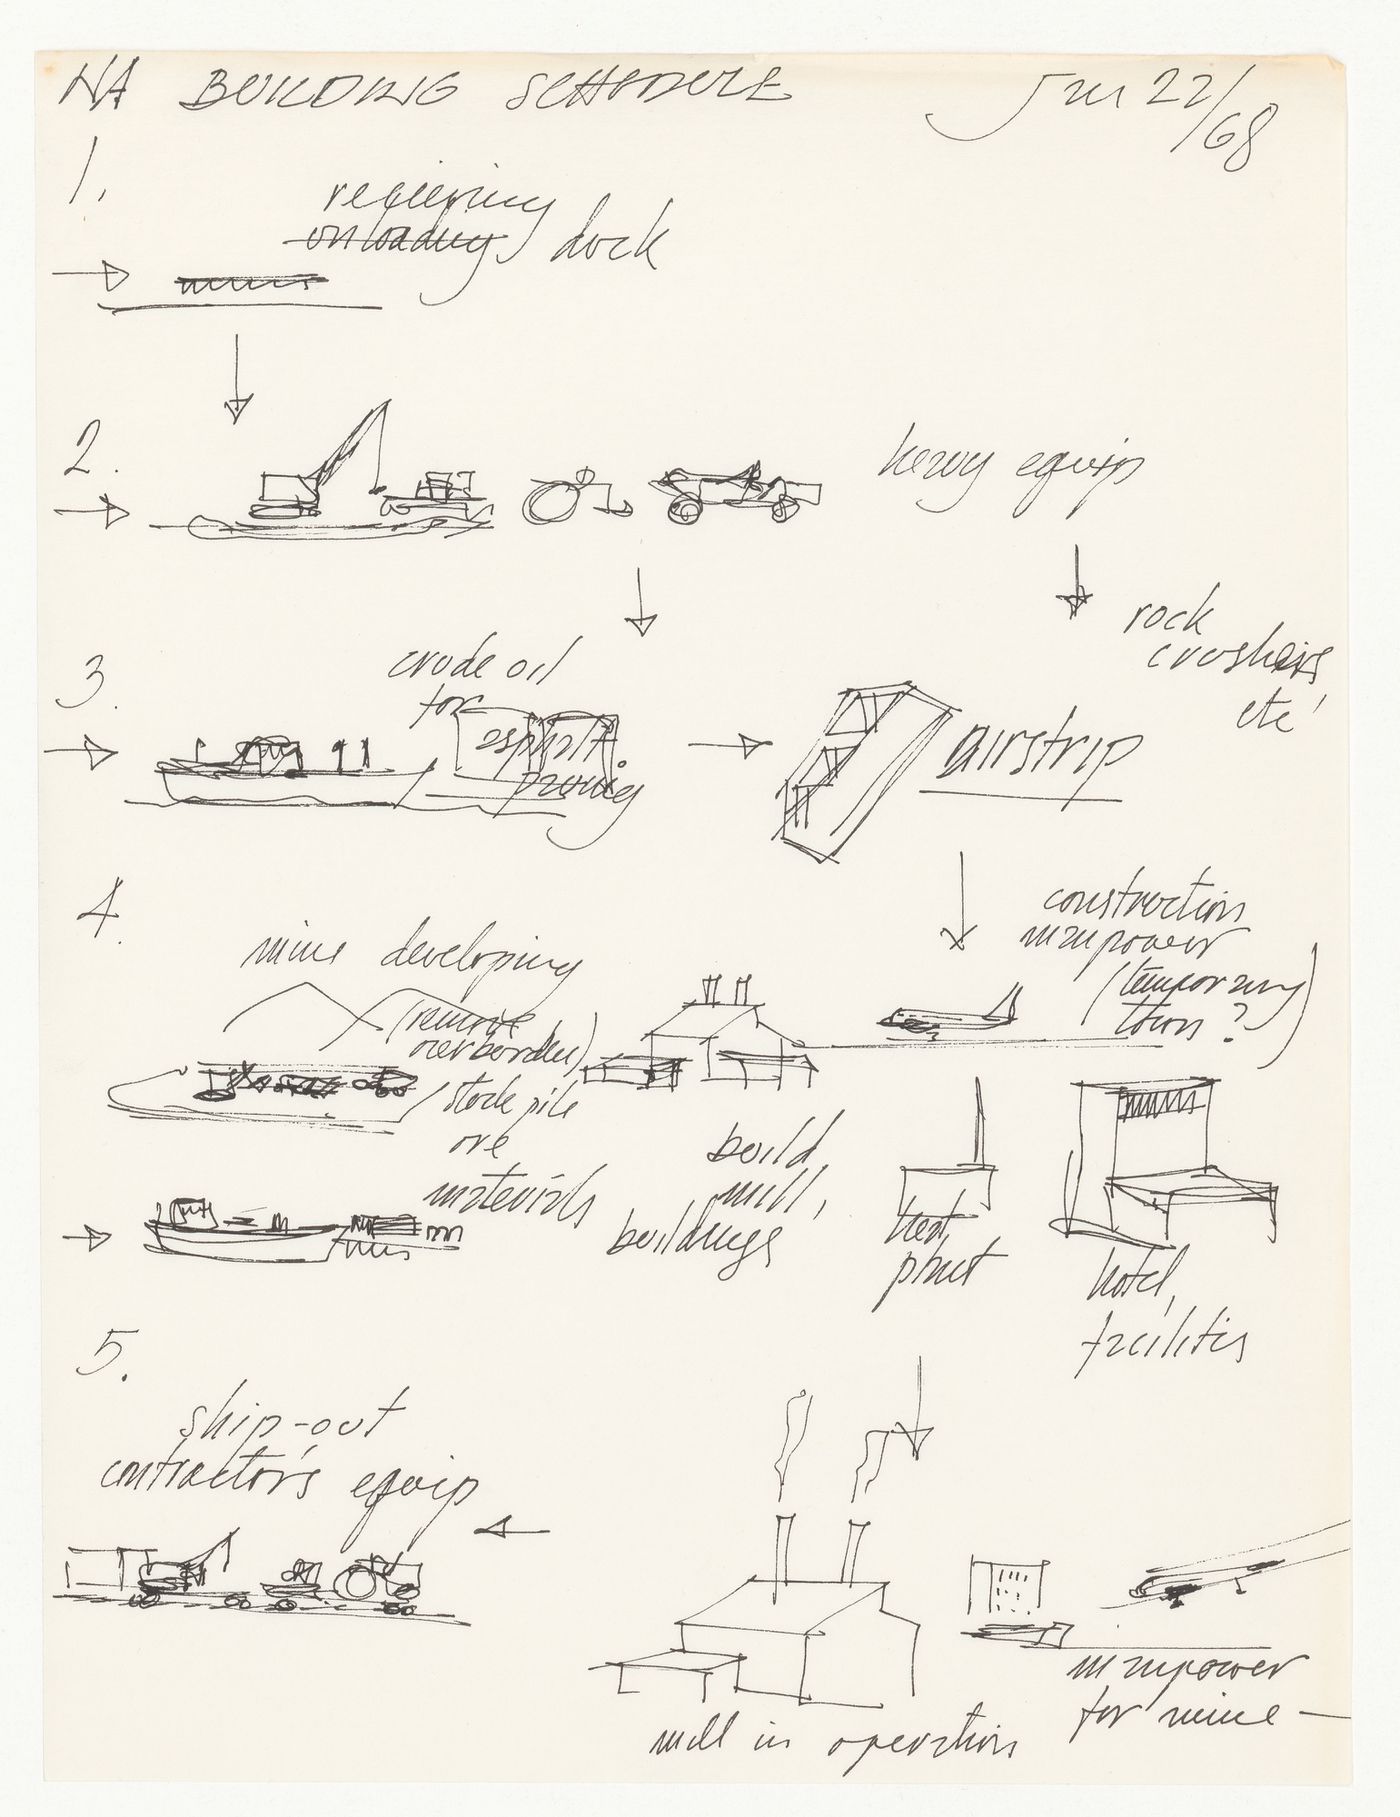 NA BUILDING SCHEDULE
Jun 22/68
1.
recieving
unloading dock
2.
heavy equip
3.
crude oil
for
asphalt
paving
airstrip
rock
crushers
etc'
4.
mine developing
(remove
overborden)
stock pile
ore
materials
build
mill,
buildings
construction
manpower
(temporary
town?)
heat
plant
hotel,
facilities
5.
ship-out
contractor's equip
mill in operation
manpower
for mine —